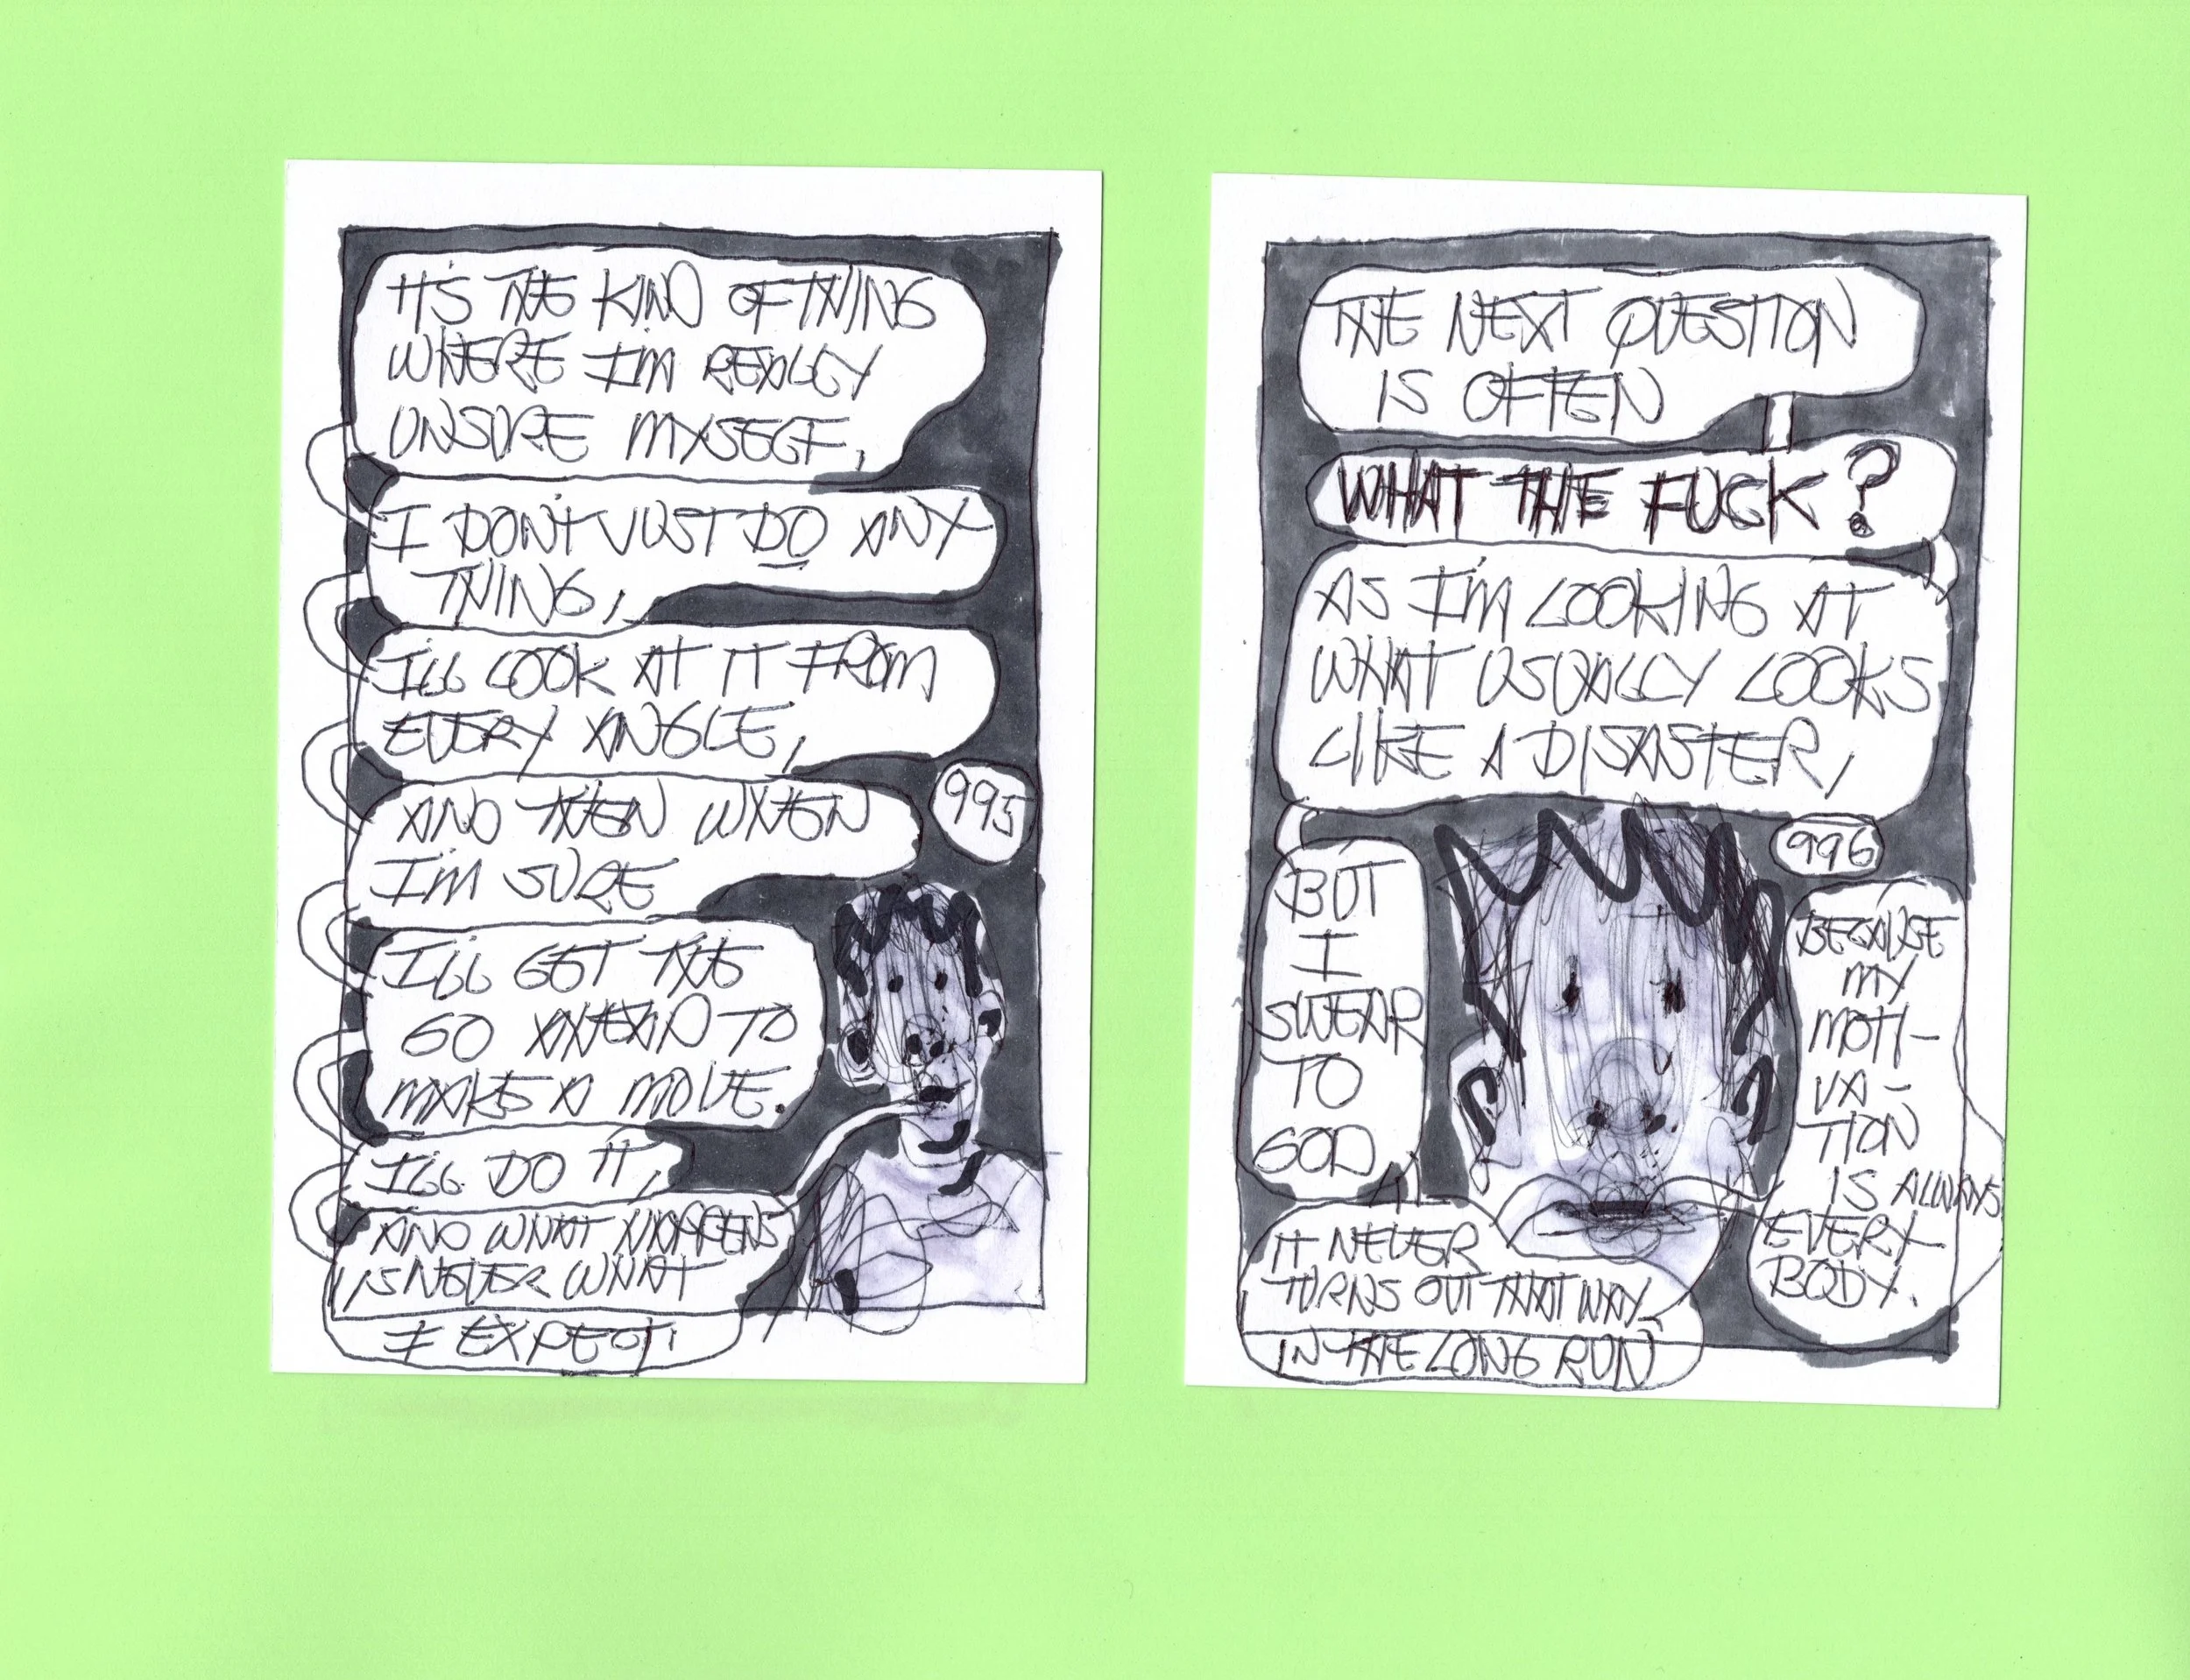 IT'S THE KIND OF THING
WHERE I'M REALLY
UNSURE MYSELF,
I DON'T JUST DO ANY
THING,
I'LL LOOK AT IT FROM
EVERY ANGLE,
AND THEN WHEN
I'M SURE
995
I'LL GET THE
GO AHEAD TO
MAKE A MOVE.
I'LL DO IT,
AND WHAT HAPPENS
IS NEVER WHAT
I EXPECT.
THE NEXT QUESTION
IS OFTEN
WHAT THE FUCK?
AS I'M LOOKING AT
WHAT USUALLY LOOKS
LIKE A DISASTER,
996
BUT
I
SWEAR
TO
GOD,
IT NEVER
TURNS OUT THAT WAY
IN THE LONG RUN
BECAUSE
MY
MOTI-
VA-
TION
IS ALLWAYS
EVERY-
BODY.